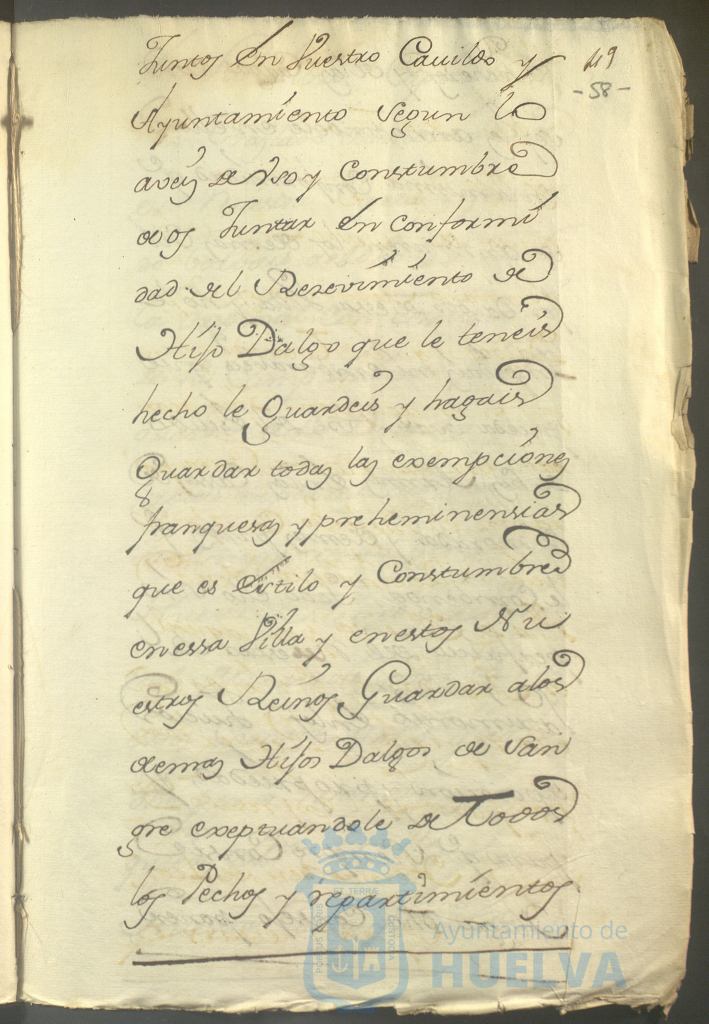 Juntos En Vuestro Cauildo y
Ayuntamiento segun lo
aveis de Vso y Constumbre
de os Juntar En conformi
dad del Rezevimiento de
Hijo Dalgo que le teneis
hecho le Guardeis y hagais
Guardar todas las exempciones
franquesas y preheminensias
que es Estilo y Constumbre
en essa Villa y en estos Nu
estros Reinos Guardar a los
demas Hijos Dalgos de San
gre exeptuandole de Todos
los Pechos y repartimientos
49
-58-
Ayuntamiento de
HUELVA